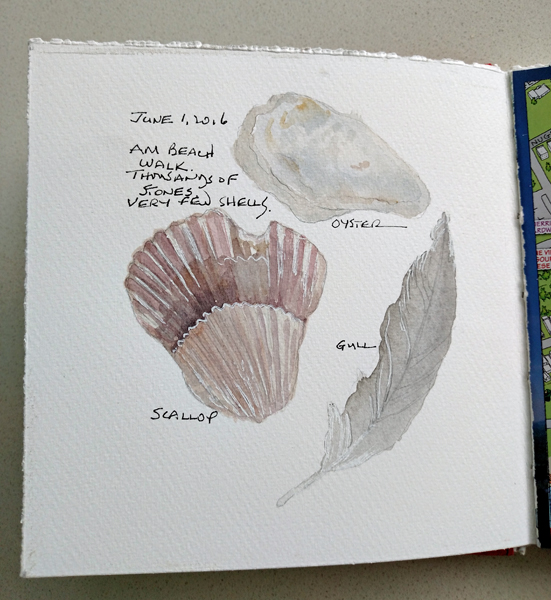 JUNE 1, 2016
AM BEACH
WALK.
THOUSANDS OF
STONES,
VERY FEW SHELLS.
OYSTER
GULL
SCALLOP